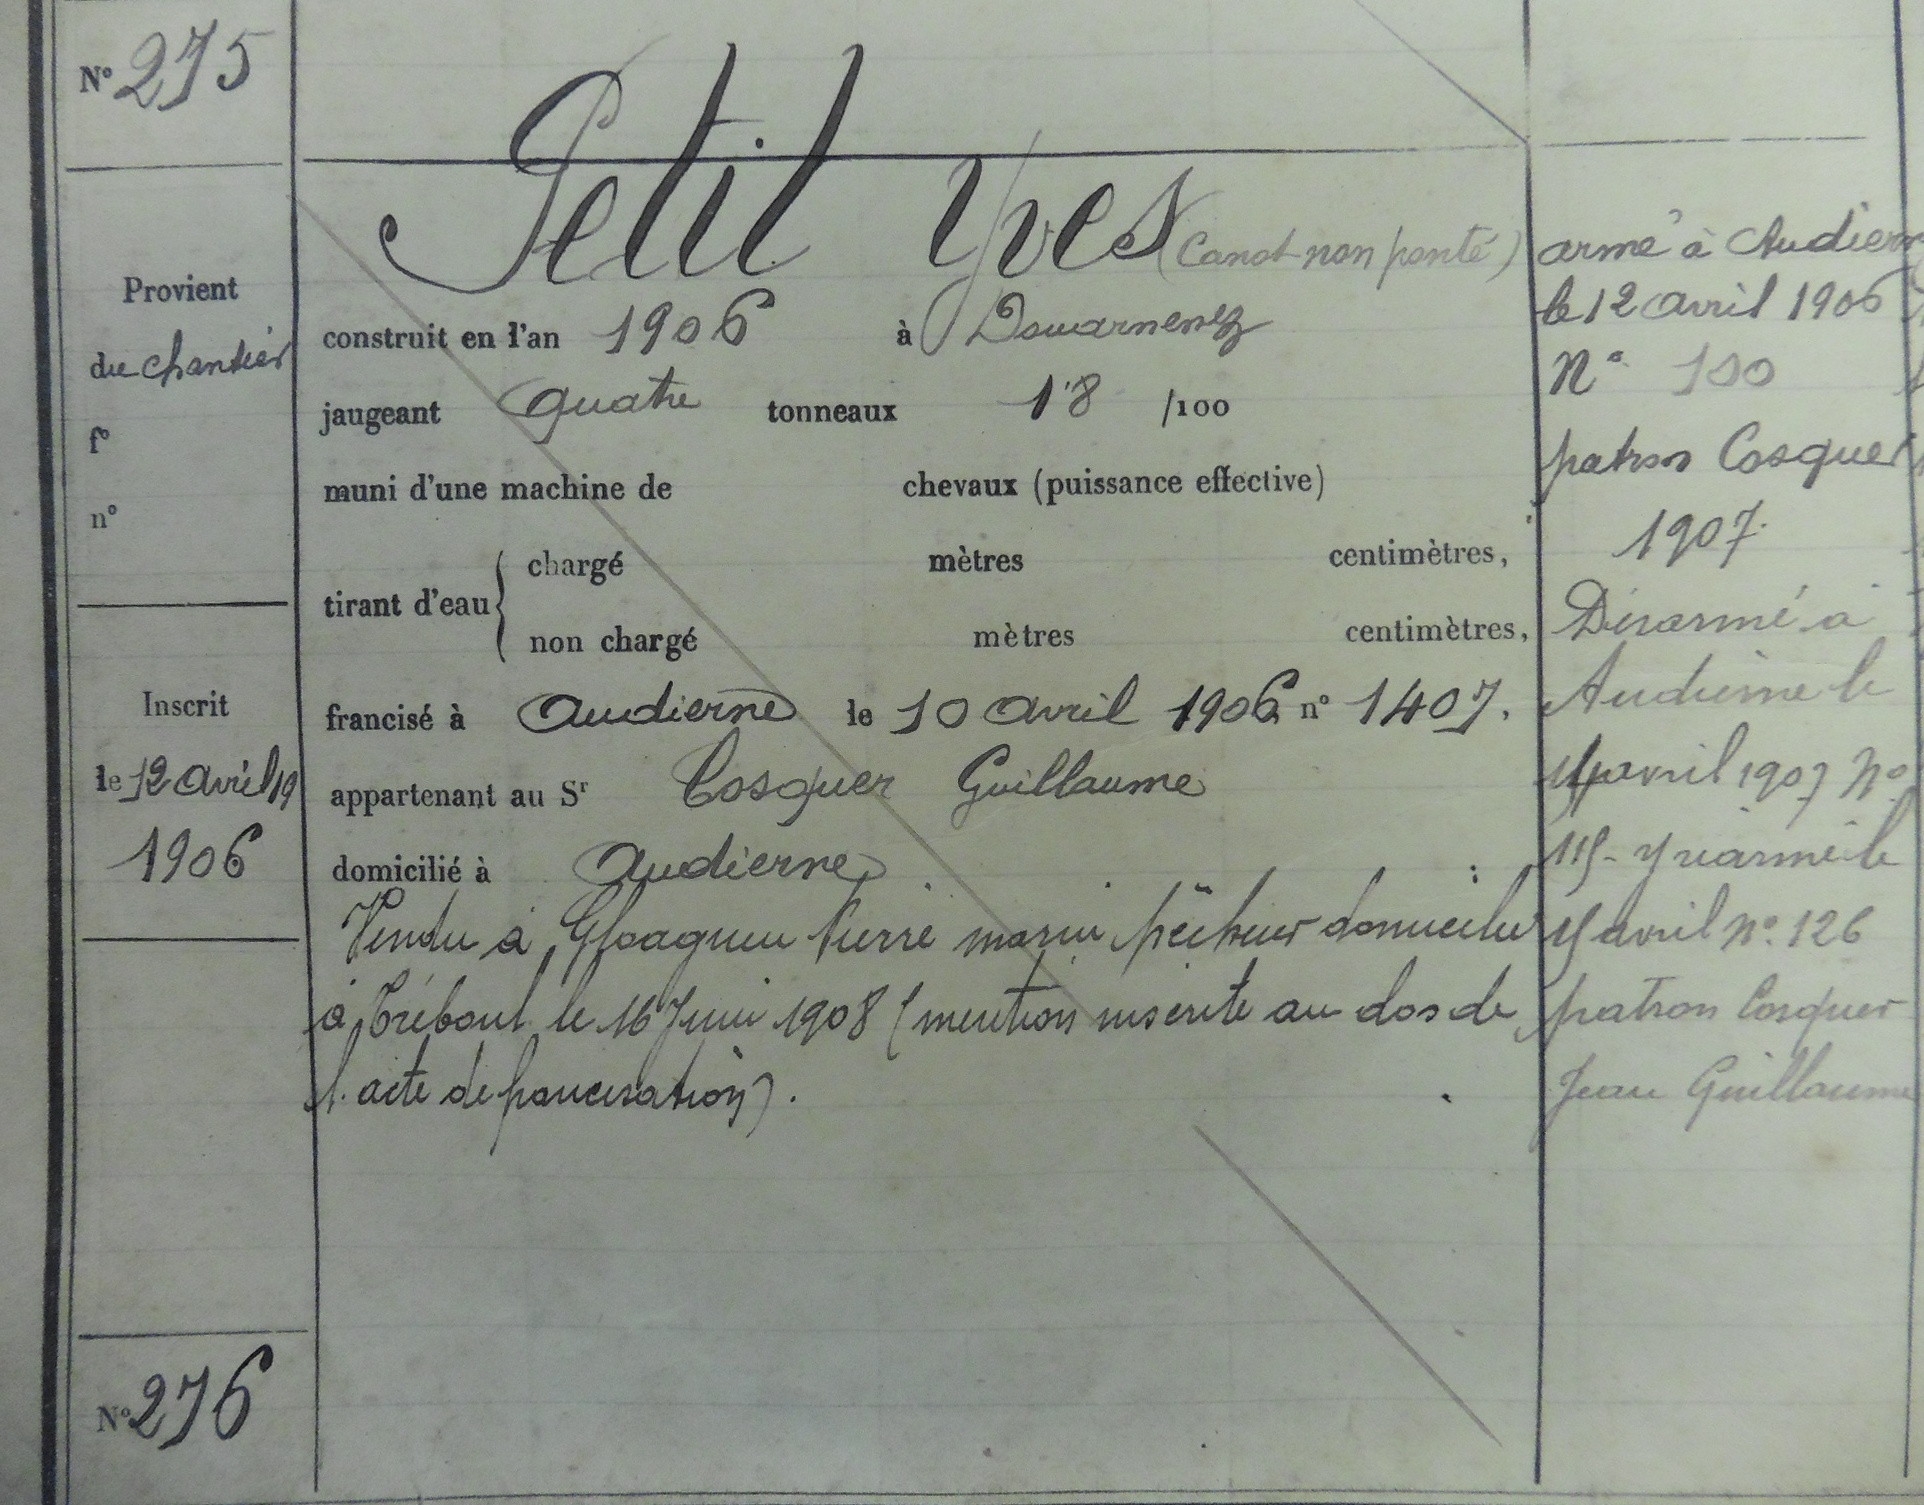 N° 275
Petit Yves (Canot non ponté)
Provient
du chantier
f°
n°
Inscrit
le 12 avril 19
1906
construit en l'an 1906 à Douarnenez
jaugeant quatre tonneaux 18 /100
muni d'une machine de chevaux (puissance effective)
tirant d'eau { chargé mètres centimètres,
non chargé mètres centimètres,
francisé à Audierne le 10 avril 1906 n° 1407.
appartenant au Sr Cosquer Guillaume
domicilié à Audierne ;
Vendu à Gloaguen Pierre marin pêcheur domicilié
à Tréboul le 16 Juin 1908 (mention inscrite au dos de
l'acte de francisation).
armé à Audierne
le 12 avril 1906
N° 100
patron Cosquer
1907.
Désarmé à
Audierne le
avril 1907 N°
115 - Y réarmé le
avril N° 126
patron Cosquer
Jean Guillaume
N° 276